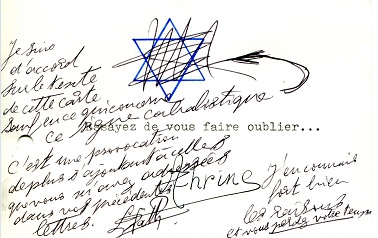 Je suis
d'accord
sur le texte
de cette carte
sauf en ce qui concerne
ce signe
Essayez de vous faire oublier...
C'est une provocation
de plus à ajouter à celles
que vous m'avez adressées
dans vos précédentes
lettres.
J'en connais
fort bien
les raisons
et vous perdez votre temps